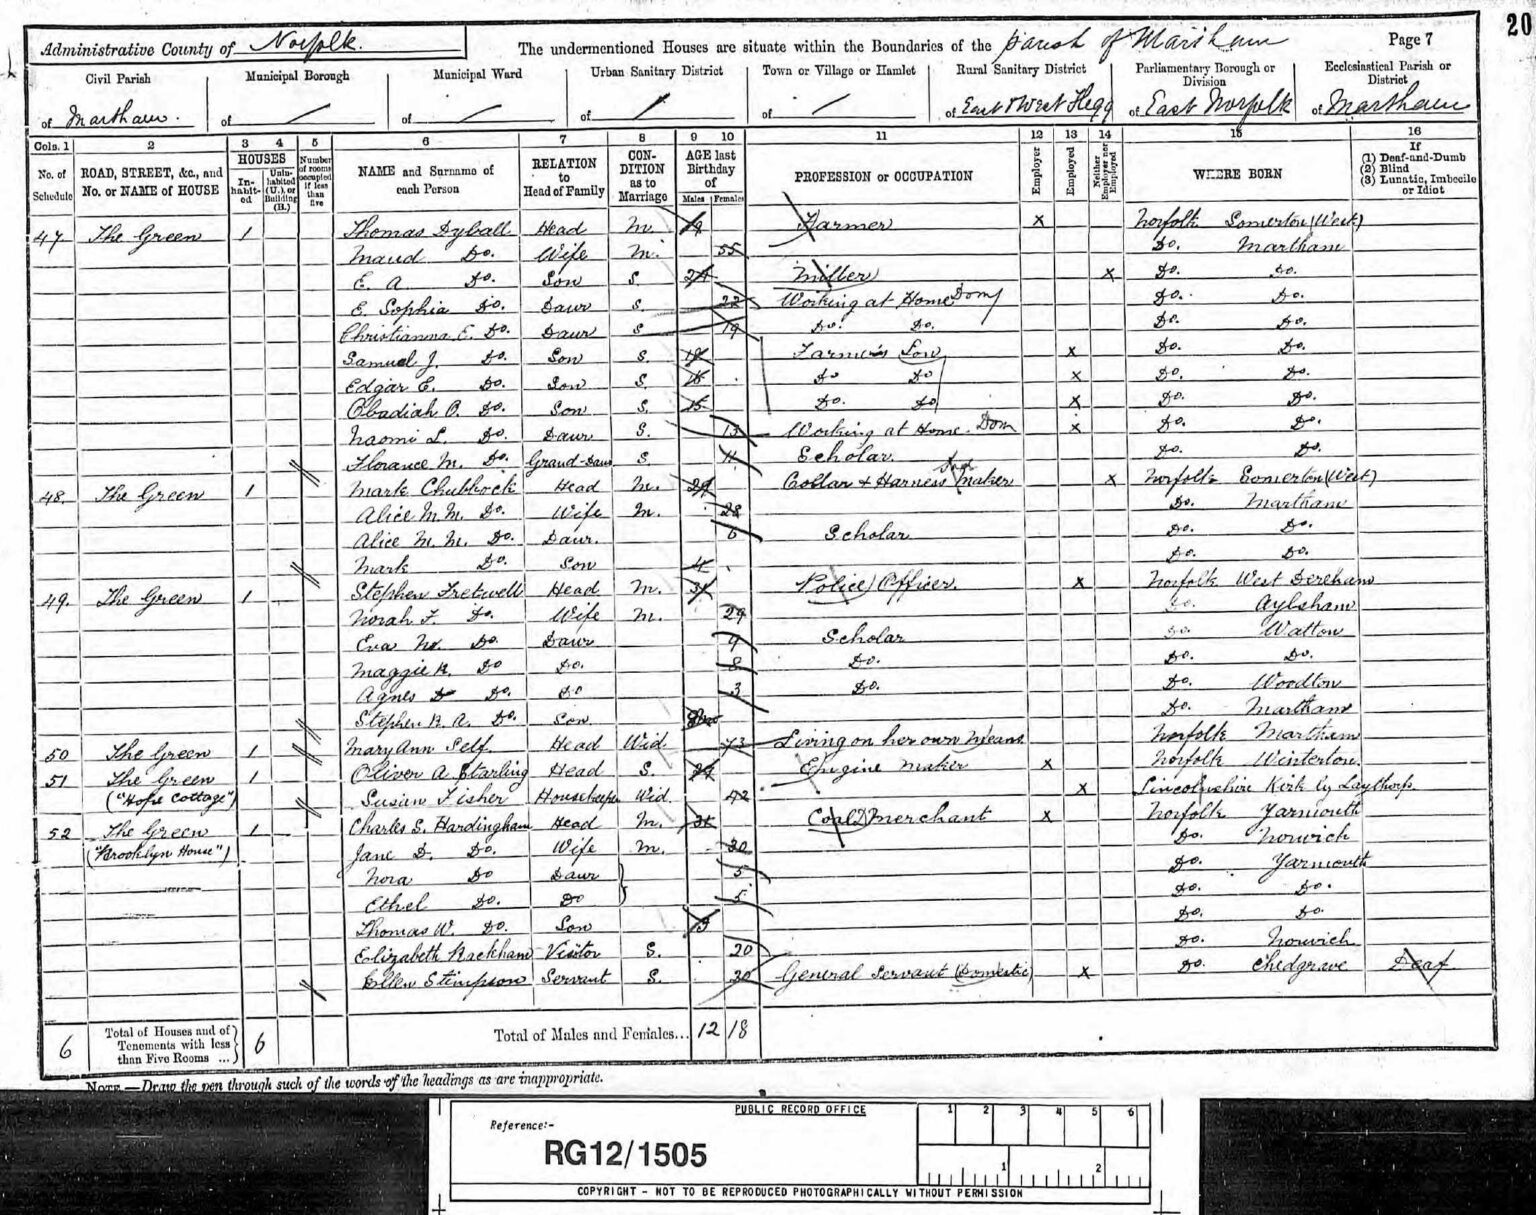 20
Administrative County of Norfolk. The undermentioned Houses are situate within the Boundaries of the Parish of Martham Page 7
Civil Parish Municipal Borough Municipal Ward Urban Sanitary District Town or Village or Hamlet Rural Sanitary District Parliamentary Borough or Division Ecclesiastical Parish or District
of Martham. of of of of of East & West Flegg of East Norfolk of Martham
Cols. 1 2 3 4 5 6 7 8 9 10 11 12 13 14 15 16
No. of Schedule ROAD, STREET, &c., and No. or NAME of HOUSE HOUSES Inhabited Uninhabited (U.), or Building (B.) Number of rooms occupied if less than five NAME and Surname of each Person RELATION to Head of Family CONDITION as to Marriage AGE last Birthday of Males Females PROFESSION or OCCUPATION Employer Employed Neither Employer nor Employed WHERE BORN If (1) Deaf-and-Dumb (2) Blind (3) Lunatic, Imbecile or Idiot
47 The Green 1 Thomas Dyball Head M. Farmer x Norfolk Somerton (West)
Maud Do. Wife M. 55 Do. Martham
E. A. Do. Son S. Miller x Do. Do.
E. Sophia Do. Daur S. 22 Working at Home Dom Do. Do.
Christianna E. Do. Daur S 19 Do. Do. Do. Do.
Samuel J. Do. Son S. Farmer's Son x Do. Do.
Edgar E. Do. Son S. Do Do x Do. Do.
Obadiah O. Do. Son S. 15 Do. Do x Do. Do.
Naomi L. Do. Daur S. 13 Working at Home. Dom x Do. Do.
Florance M. Do. Grand-Daur S. 11 Scholar. Do. Do.
48. The Green 1 Mark Chubbock Head M. 29 Collar & Harness maker x Norfolk Somerton (West)
Alice M. M. Do. Wife M. 28 Do. Martham
Alice M. M. Do. Daur. 6 Scholar Do. Do.
Mark Do. Son 4 Do. Do.
49. The Green 1 Stephen Fretwell Head M. 31 Police Officer. x Norfolk West Dereham
Norah F. Do. Wife M. 29 Do. Aylsham
Eva M. Do. Daur 9 Scholar Do. Watton
Maggie K. Do Do. 8 Do. Do. Do.
Agnes Do. Do 3 Do. Do. Woodton
Stephen R. A. Do. Son Do. Martham
50 The Green 1 Mary Ann Self. Head Wid. 73 Living on her own Means Norfolk Martham
51 The Green 1 Oliver A Starling Head S. 29 Engine Maker x Norfolk Winterton.
("Hope Cottage") Susan Fisher Housekeeper Wid. 42 x Lincolnshire Kirk by Laythorp.
52 The Green 1 Charles S. Hardingham Head M. 31 Coal Merchant x Norfolk Yarmouth
("Brooklyn House") Jane D. Do. Wife M. 30 Do. Norwich
Nora Do Daur 5 Do. Yarmouth
Ethel Do. Do 5 Do. Do.
Thomas W. Do. Son 3 Do. Do
Elizabeth Rackham Visitor S. 20 Do. Norwich
Ellen Stimpson Servant S. 30 General Servant (Domestic) x Do. Chedgrave Deaf
6 Total of Houses and of Tenements with less than Five Rooms ... 6 Total of Males and Females... 12 18
NOTE.—Draw the pen through such of the words of the headings as are inappropriate.
PUBLIC RECORD OFFICE
Reference:-
RG12/1505
1 2 3 4 5 6
1 2
COPYRIGHT - NOT TO BE REPRODUCED PHOTOGRAPHICALLY WITHOUT PERMISSION